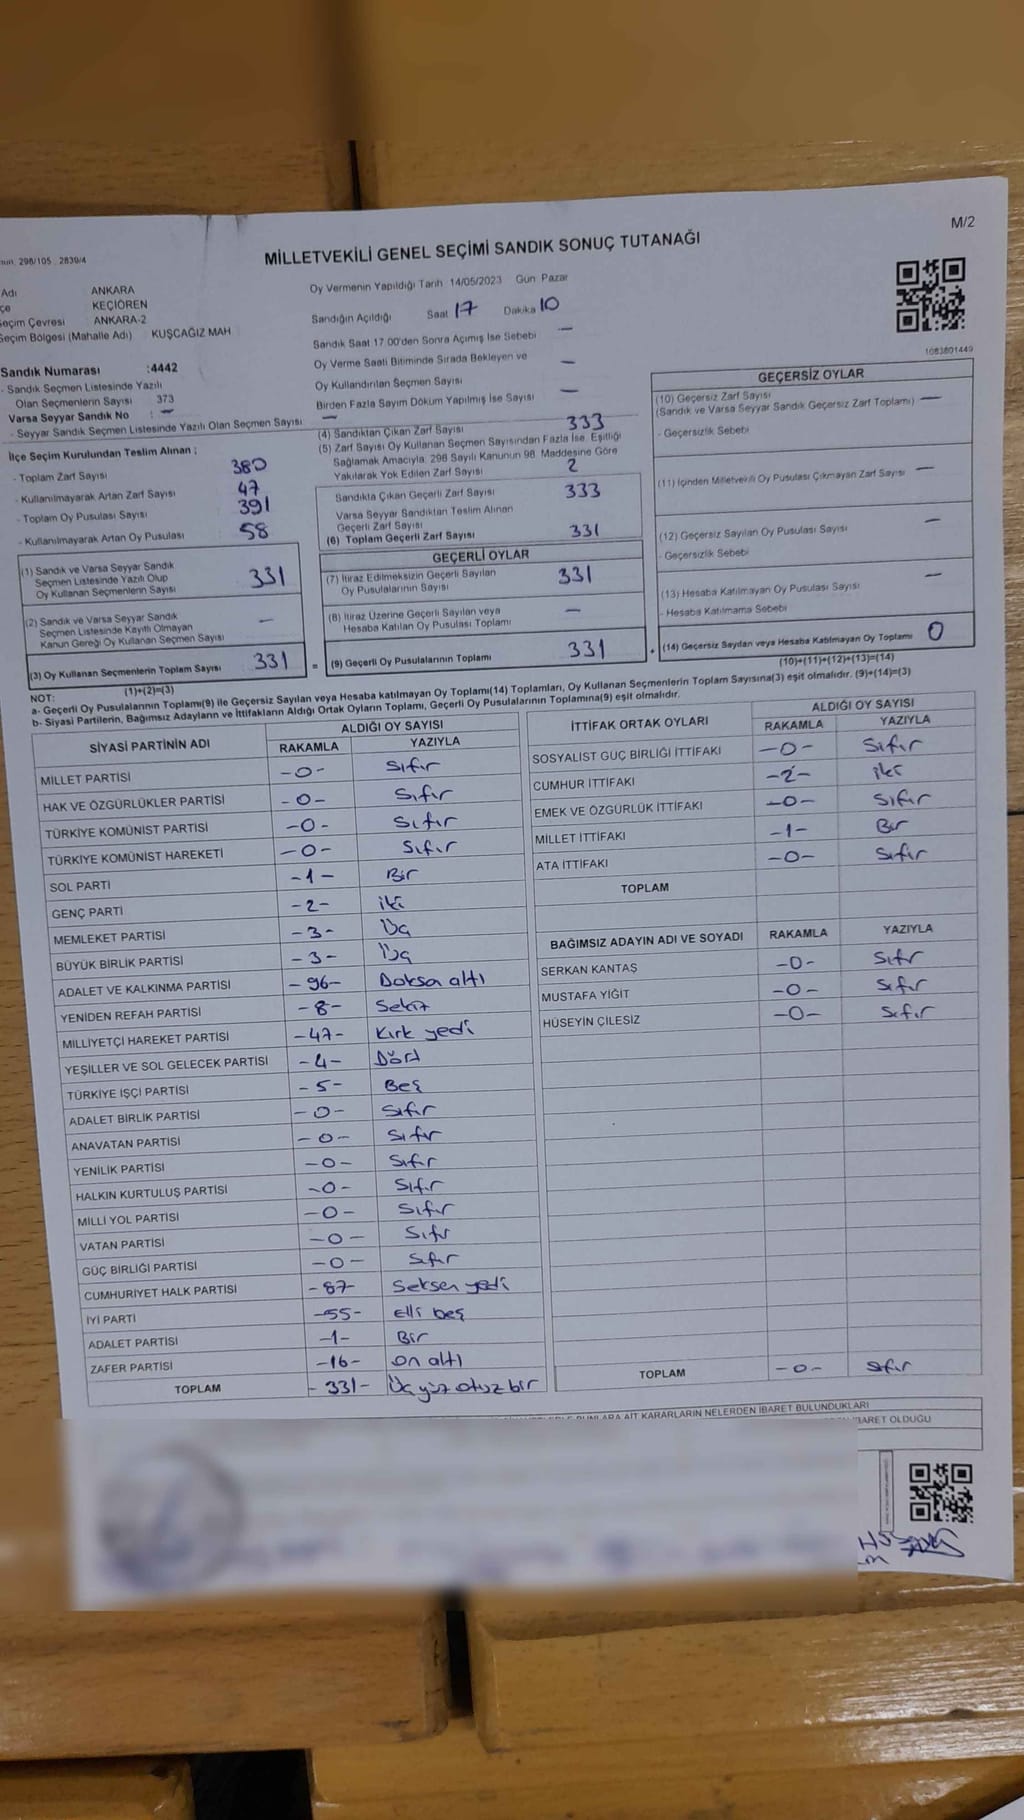 M/2
298/105 2839/4
MİLLETVEKİLİ GENEL SEÇİMİ SANDIK SONUÇ TUTANAĞI
Adı ANKARA
çe KEÇİÖREN
eçim Çevresi ANKARA-2
Seçim Bölgesi (Mahalle Adı) KUŞCAĞIZ MAH
Sandık Numarası :4442
- Sandık Seçmen Listesinde Yazılı
Olan Seçmenlerin Sayısı 373
Varsa Seyyar Sandık No : —
- Seyyar Sandık Seçmen Listesinde Yazılı Olan Seçmen Sayısı —
İlçe Seçim Kurulundan Teslim Alınan ;
- Toplam Zarf Sayısı 380
- Kullanılmayarak Artan Zarf Sayısı 47
- Toplam Oy Pusulası Sayısı 391
- Kullanılmayarak Artan Oy Pusulası 58
(1) Sandık ve Varsa Seyyar Sandık
Seçmen Listesinde Yazılı Olup
Oy Kullanan Seçmenlerin Sayısı 331
(2) Sandık ve Varsa Seyyar Sandık
Seçmen Listesinde Kayıtlı Olmayan
Kanun Gereği Oy Kullanan Seçmen Sayısı —
(3) Oy Kullanan Seçmenlerin Toplam Sayısı 331
(1)+(2)=(3)
Oy Vermenin Yapıldığı Tarih 14/05/2023 Gün Pazar
Sandığın Açıldığı Saat 17 Dakika 10
Sandık Saat 17:00'den Sonra Açımış İse Sebebi —
Oy Verme Saati Bitiminde Sırada Bekleyen ve
Oy Kullandırılan Seçmen Sayısı —
Birden Fazla Sayım Döküm Yapılmış İse Sayısı —
(4) Sandıktan Çıkan Zarf Sayısı 333
(5) Zarf Sayısı Oy Kullanan Seçmen Sayısından Fazla İse, Eşitliği
Sağlamak Amacıyla, 298 Sayılı Kanunun 98. Maddesine Göre
Yakılarak Yok Edilen Zarf Sayısı 2
Sandıkta Çıkan Geçerli Zarf Sayısı 333
Varsa Seyyar Sandıktan Teslim Alınan
Geçerli Zarf Sayısı
(6) Toplam Geçerli Zarf Sayısı 331
GEÇERLİ OYLAR
(7) İtiraz Edilmeksizin Geçerli Sayılan
Oy Pusulalarının Sayısı 331
(8) İtiraz Üzerine Geçerli Sayılan veya
Hesaba Katılan Oy Pusulası Toplamı —
= (9) Geçerli Oy Pusulalarının Toplamı 331 +
1083801449
GEÇERSİZ OYLAR
(10) Geçersiz Zarf Sayısı
(Sandık ve Varsa Seyyar Sandık Geçersiz Zarf Toplamı) —
- Geçersizlik Sebebi
(11) İçinden Milletvekili Oy Pusulası Çıkmayan Zarf Sayısı —
(12) Geçersiz Sayılan Oy Pusulası Sayısı —
- Geçersizlik Sebebi
(13) Hesaba Katılmayan Oy Pusulası Sayısı —
- Hesaba Katılmama Sebebi
(14) Geçersiz Sayılan veya Hesaba Katılmayan Oy Toplamı 0
(10)+(11)+(12)+(13)=(14)
NOT:
a- Geçerli Oy Pusulalarının Toplamı(9) ile Geçersiz Sayılan veya Hesaba katılmayan Oy Toplamı(14) Toplamları, Oy Kullanan Seçmenlerin Toplam Sayısına(3) eşit olmalıdır. (9)+(14)=(3)
b- Siyasi Partilerin, Bağımsız Adayların ve İttifakların Aldığı Ortak Oyların Toplamı, Geçerli Oy Pusulalarının Toplamına(9) eşit olmalıdır.
SİYASİ PARTİNİN ADI ALDIĞI OY SAYISI
RAKAMLA YAZIYLA
MİLLET PARTİSİ -0- Sıfır
HAK VE ÖZGÜRLÜKLER PARTİSİ -0- Sıfır
TÜRKİYE KOMÜNİST PARTİSİ -0- Sıfır
TÜRKİYE KOMÜNİST HAREKETİ -0- Sıfır
SOL PARTİ -1- Bir
GENÇ PARTİ -2- iki
MEMLEKET PARTİSİ -3- Üç
BÜYÜK BİRLİK PARTİSİ -3- Üç
ADALET VE KALKINMA PARTİSİ -96- Doksa altı
YENİDEN REFAH PARTİSİ -8- Sekiz
MİLLİYETÇİ HAREKET PARTİSİ -47- Kırk yedi
YEŞİLLER VE SOL GELECEK PARTİSİ -4- Dört
TÜRKİYE İŞÇİ PARTİSİ -5- Beş
ADALET BİRLİK PARTİSİ -0- Sıfır
ANAVATAN PARTİSİ -0- Sıfır
YENİLİK PARTİSİ -0- Sıfır
HALKIN KURTULUŞ PARTİSİ -0- Sıfır
MİLLİ YOL PARTİSİ -0- Sıfır
VATAN PARTİSİ -0- Sıfır
GÜÇ BİRLİĞİ PARTİSİ -0- Sıfır
CUMHURİYET HALK PARTİSİ -87- Seksen yedi
İYİ PARTİ -55- Elli beş
ADALET PARTİSİ -1- Bir
ZAFER PARTİSİ -16- On altı
TOPLAM -331- Üç yüz otuz bir
İTTİFAK ORTAK OYLARI ALDIĞI OY SAYISI
RAKAMLA YAZIYLA
SOSYALİST GÜÇ BİRLİĞİ İTTİFAKI -0- Sıfır
CUMHUR İTTİFAKI -2- iki
EMEK VE ÖZGÜRLÜK İTTİFAKI -0- Sıfır
MİLLET İTTİFAKI -1- Bir
ATA İTTİFAKI -0- Sıfır
TOPLAM
BAĞIMSIZ ADAYIN ADI VE SOYADI RAKAMLA YAZIYLA
SERKAN KANTAŞ -0- Sıfır
MUSTAFA YİĞİT -0- Sıfır
HÜSEYİN ÇİLESİZ -0- Sıfır
TOPLAM -0- Sıfır
BUNLARA AİT KARARLARIN NELERDEN İBARET BULUNDUKLARI
İBARET OLDUĞU